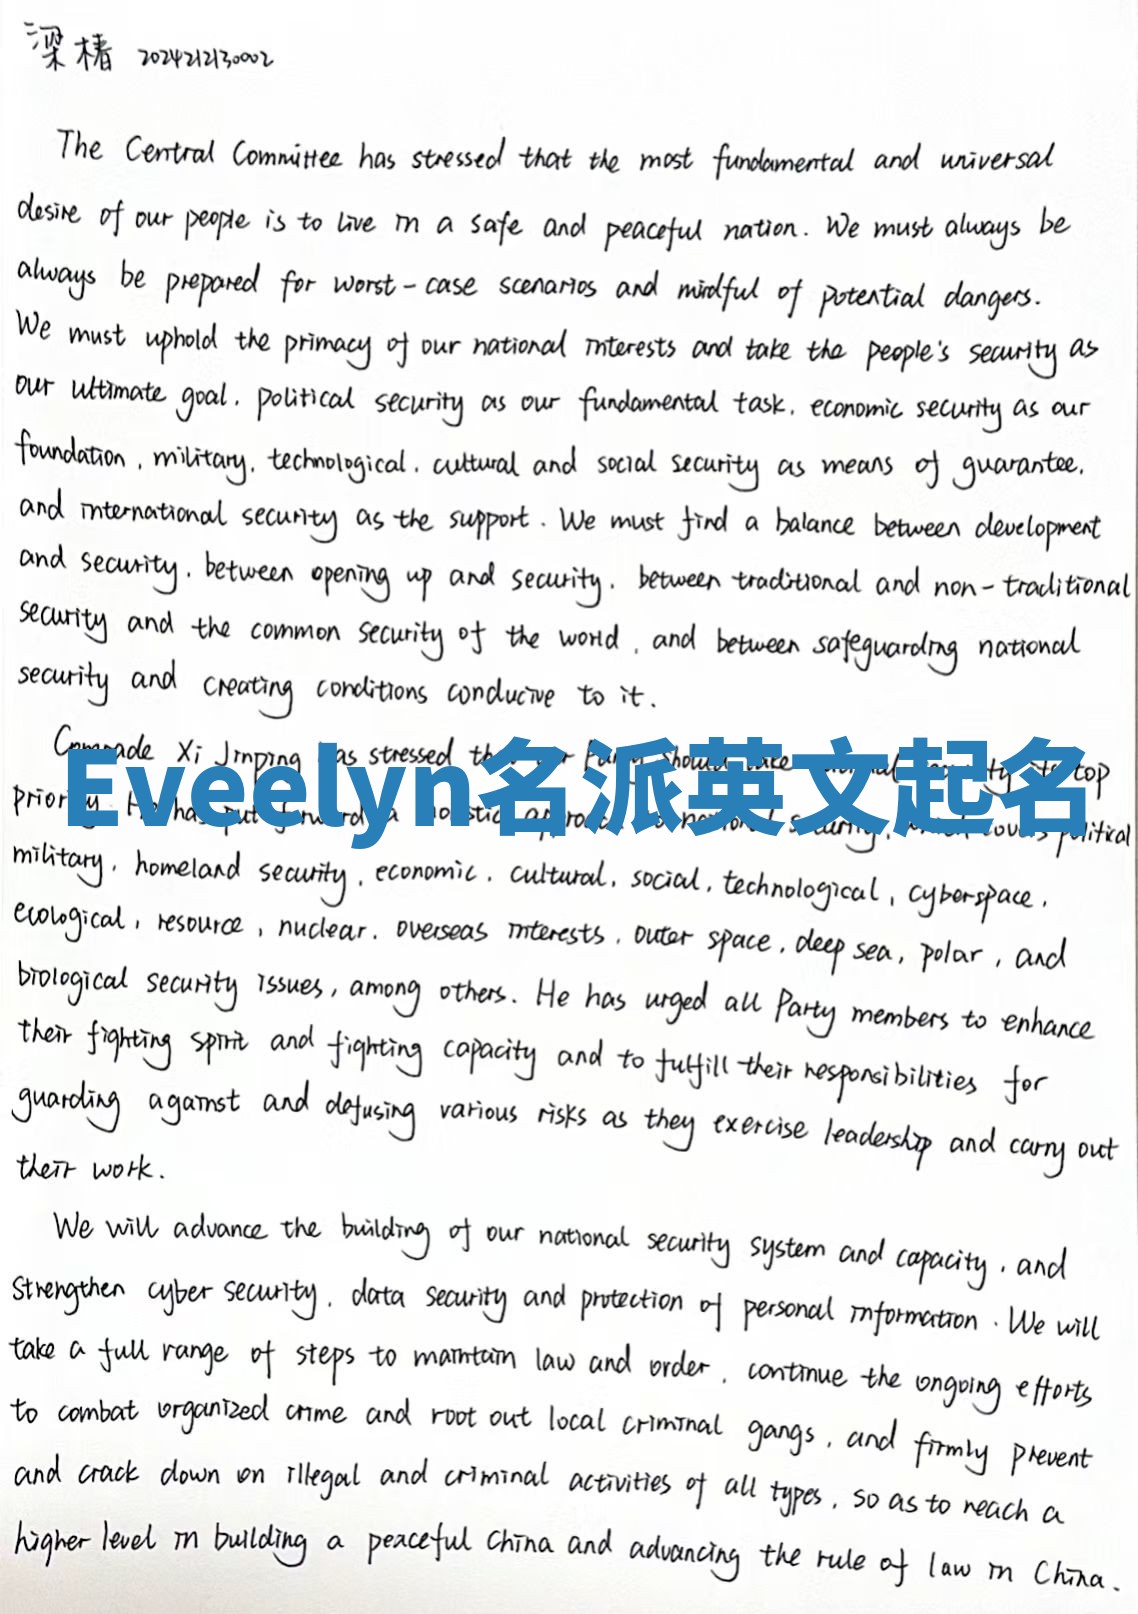 梁椿 2024212130002
The Central Committee has stressed that the most fundamental and universal
desire of our people is to live in a safe and peaceful nation. We must always be
always be prepared for worst-case scenarios and mindful of potential dangers.
We must uphold the primacy of our national interests and take the people's security as
our ultimate goal, political security as our fundamental task, economic security as our
foundation, military, technological, cultural and social security as means of guarantee,
and international security as the support. We must find a balance between development
and security, between opening up and security, between traditional and non-traditional
security and the common security of the world, and between safeguarding national
security and creating conditions conducive to it.
Comrade Xi Jinping has stressed top
Eveelyn名派英文起名
priority. He has put forward a holistic security, political
military, homeland security, economic, cultural, social, technological, cyberspace,
ecological, resource, nuclear, overseas interests, outer space, deep sea, polar, and
biological security issues, among others. He has urged all Party members to enhance
their fighting spirit and fighting capacity and to fulfill their responsibilities for
guarding against and defusing various risks as they exercise leadership and carry out
their work.
We will advance the building of our national security system and capacity, and
strengthen cyber security, data security and protection of personal information. We will
take a full range of steps to maintain law and order, continue the ongoing efforts
to combat organized crime and root out local criminal gangs, and firmly prevent
and crack down on illegal and criminal activities of all types, so as to reach a
higher level in building a peaceful China and advancing the rule of law in China.